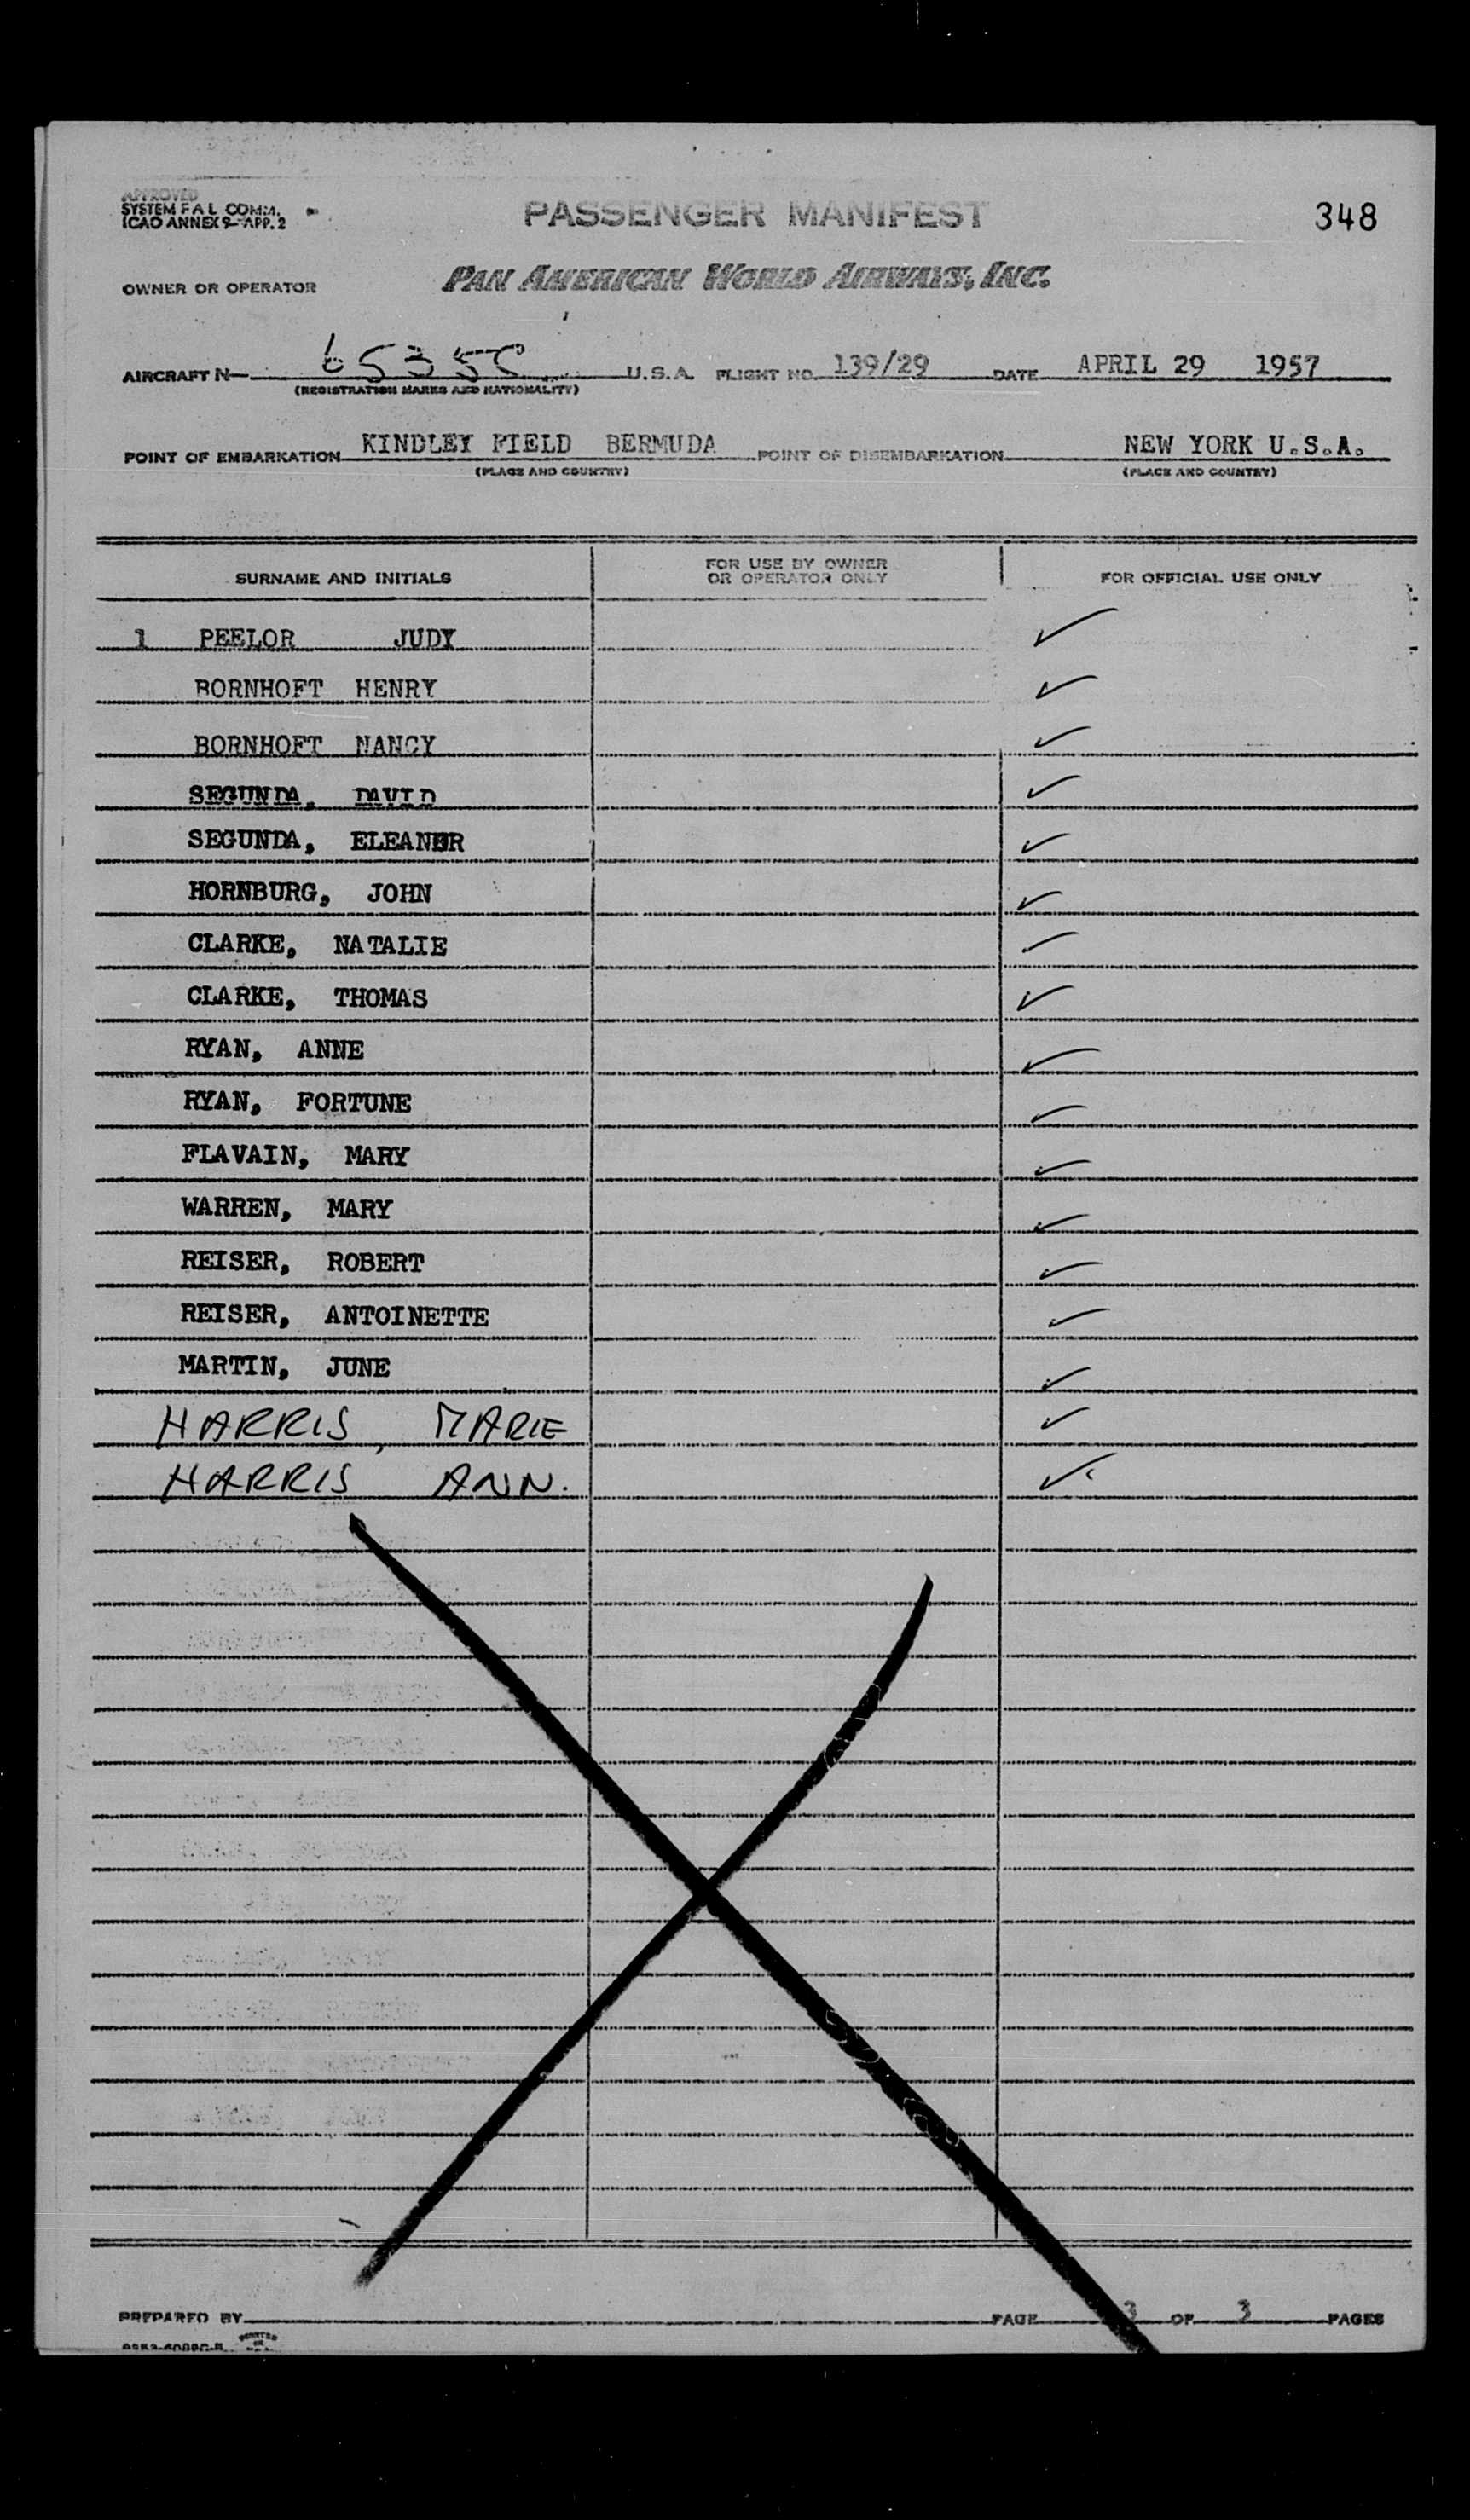 APPROVED
SYSTEM F A L COMM.
ICAO ANNEX 9-APP. 2
PASSENGER MANIFEST
348
OWNER OR OPERATOR
PAN AMERICAN WORLD AIRWAYS, INC.
AIRCRAFT N— 65355C U.S.A. FLIGHT NO. 139/29 DATE APRIL 29 1957
(REGISTRATION MARKS AND NATIONALITY)
POINT OF EMBARKATION KINDLEY FIELD BERMUDA POINT OF DISEMBARKATION NEW YORK U.S.A.
(PLACE AND COUNTRY) (PLACE AND COUNTRY)
SURNAME AND INITIALS FOR USE BY OWNER OR OPERATOR ONLY FOR OFFICIAL USE ONLY
1 PEELOR JUDY ✓
BORNHOFT HENRY ✓
BORNHOFT NANCY ✓
SEGUNDA, DAVID ✓
SEGUNDA, ELEANOR ✓
HORNBURG, JOHN ✓
CLARKE, NATALIE ✓
CLARKE, THOMAS ✓
RYAN, ANNE ✓
RYAN, FORTUNE ✓
FLAVAIN, MARY ✓
WARREN, MARY ✓
REISER, ROBERT ✓
REISER, ANTOINETTE ✓
MARTIN, JUNE ✓
HARRIS, MARIE ✓
HARRIS ANN. ✓
PREPARED BY PAGE 3 OF 3 PAGES